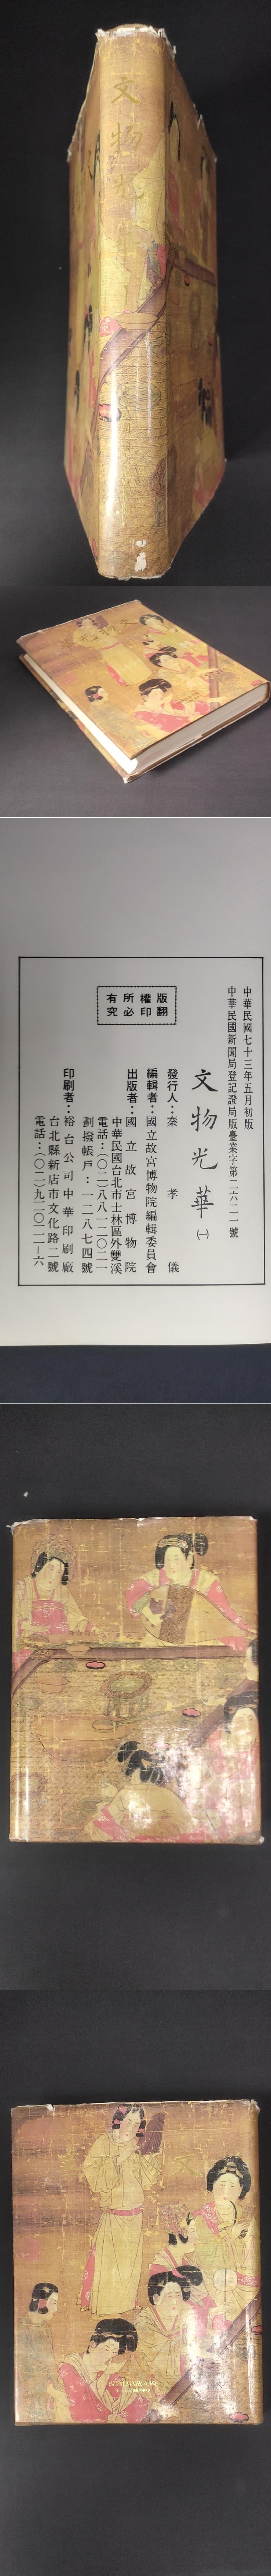 文物光
文物光華
中華民國七十三年五月初版
中華民國新聞局登記證局版臺業字第二六二一號
文物光華㈠
版權所有
翻印必究
發行人：秦孝儀
編輯者：國立故宮博物院編輯委員會
出版者：國立故宮博物院
中華民國台北市士林區外雙溪
電話：(〇二)八八一二〇二一
劃撥帳戶：一二八七四號
印刷者：裕台公司中華印刷廠
台北縣新店市文化路二號
電話：(〇二)九二〇一一一—六
文
國立故宮博物院